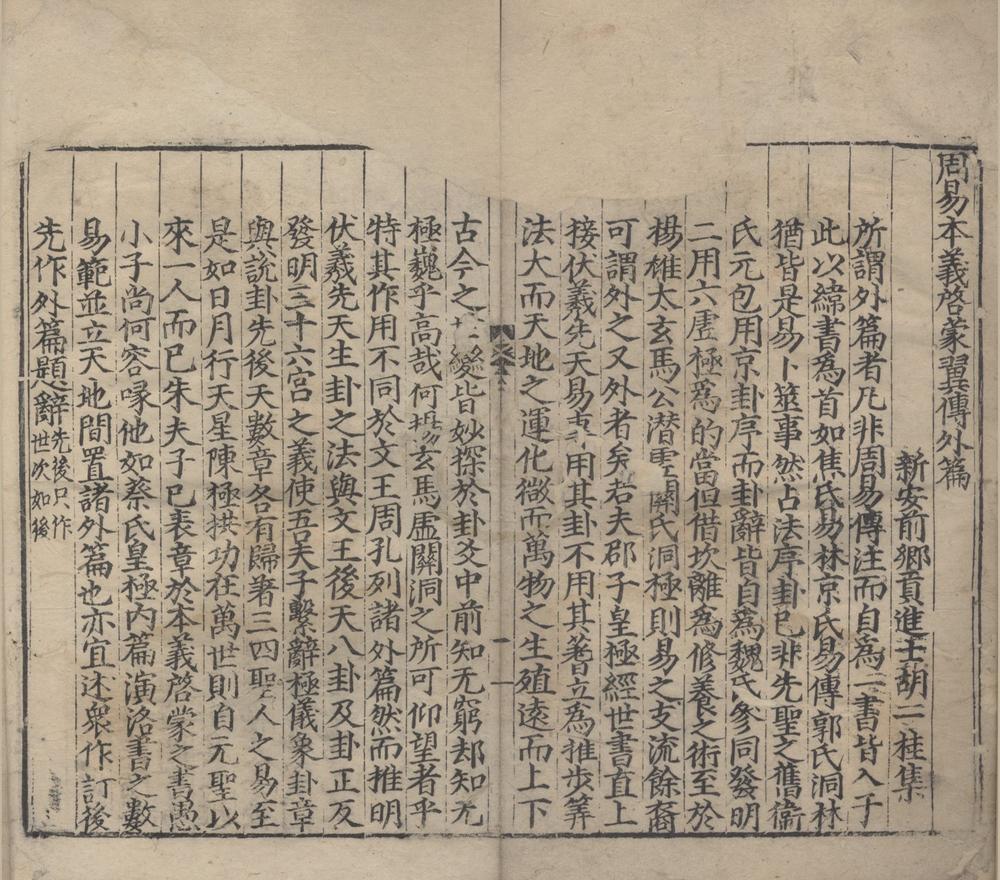 周易本義啓蒙翼傳外篇
新安前鄉貢進士胡一桂集
所謂外篇者凡非周易傳注而自為一書皆入于
此以緯書為首如焦氏易林京氏易傳郭氏洞林
猶皆是易卜筮事然占法序卦已非先聖之舊衛
氏元包用京卦序而卦辭皆自為魏氏參同發明
二用六虛極為的當但借坎離為修養之術至於
楊雄太玄馬公潛虛關氏洞極則易之支流餘裔
可謂外之又外者矣若夫邵子皇極經世書直上
接伏羲先天易用其卦不用其蓍立為推步筭
法大而天地之運化微而萬物之生殖遠而上下
古今之皆妙探於卦爻中前知无窮却知无
極巍乎高哉何揚玄馬虛關洞之所可仰望者乎
特其作用不同於文王周孔列諸外篇然而推明
伏羲先天生卦之法與文王後天八卦及卦正反
發明三十六宮之義使吾夫子繫辭極儀象卦章
與說卦先後天數章各有歸著三四聖人之易至
是如日月行天星陳極拱功在萬世則自元聖以
來一人而已朱夫子已表章於本義啓蒙之書愚
小子尚何容喙他如蔡氏皇極內篇演洛書之數
易範並立天地間置諸外篇也亦宜述衆作訂後
先作外篇題辭先後只作世次如後